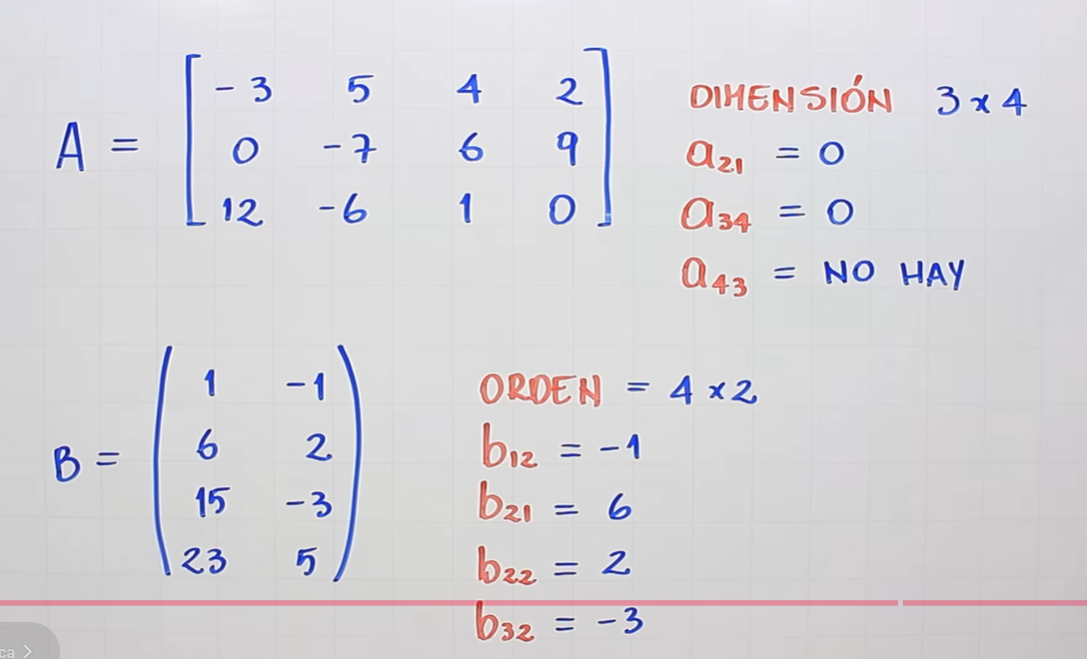 A = [ -3 5 4 2
0 -7 6 9
12 -6 1 0 ]
DIMENSIÓN 3 x 4
a21 = 0
a34 = 0
a43 = NO HAY
B = ( 1 -1
6 2
15 -3
23 5 )
ORDEN = 4 x 2
b12 = -1
b21 = 6
b22 = 2
b32 = -3
ca >